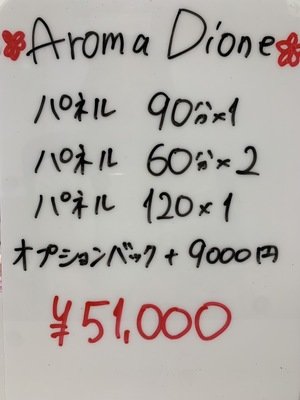 Aroma Dione
パネル 90分×1
パネル 60分×2
パネル 120×1
オプションバック+9000円
¥51,000